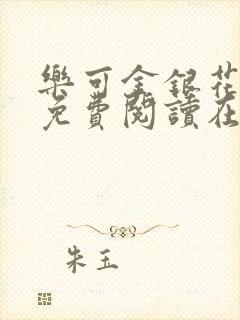 樂可金銀花
免費閱讀在
朱玉